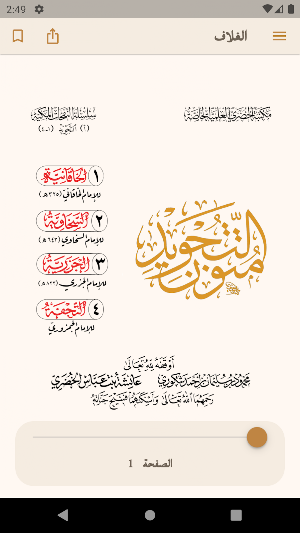 2:49
الغلاف
مكتبة الخضري العلمية الخاصة
(١) التجويد (١-٤)
متون التجويد
١ الخاقانية
للإمام الخاقاني (٣٢٥هـ)
٢ السخاوية
للإمام السخاوي (٦٤٣هـ)
٣ الجزرية
للإمام الجزري (٨٣٣هـ)
٤ التحفة
للإمام الجمزوري
أوقفه لله تعالى
عائشة بنت عباس الخضري
رحمهما الله تعالى وأسكنهما فسيح جناته
الصفحة 1